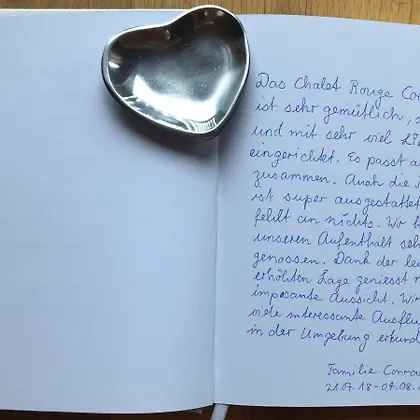 Das Chalet Rouge
ist sehr gemütlich,
und mit sehr viel
eingerichtet. Es passt
zusammen. Auch die
ist super ausgestattet
fehlt an nichts. Wir
unseren Aufenthalt
genossen. Dank der
erhöhten Lage geniesst
imposante Aussicht. Wir
viele interessante
in der Umgebung
Familie
21.07.18-04.08.